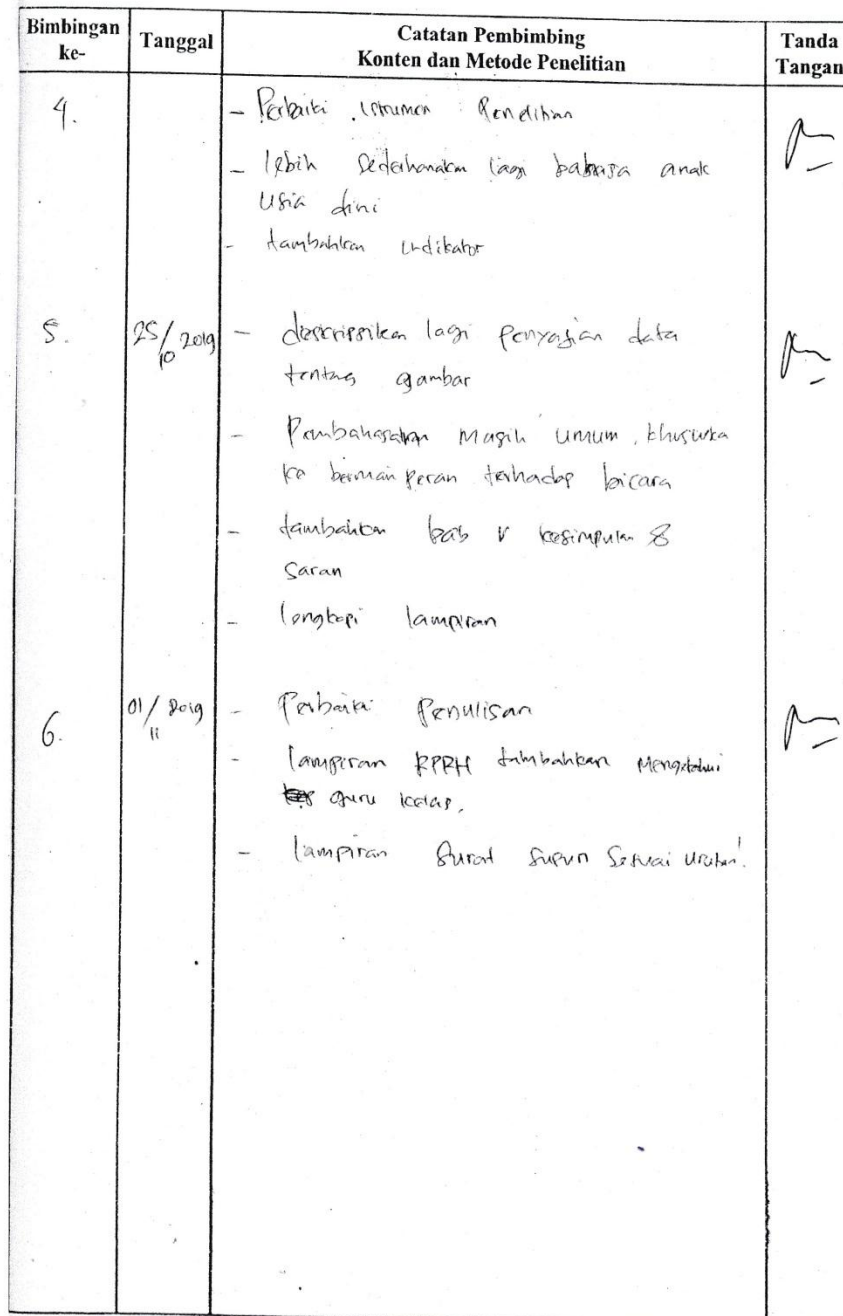 Bimbingan ke- Tanggal Catatan Pembimbing Konten dan Metode Penelitian Tanda Tangan
4. - Perbaiki Istrumen Penelitian
- lebih sederhanakan lagi bahasa anak
usia dini
- tambahkan indikator
5. 25/10 2019 - deskripsikan lagi penyajian data
tentang gambar
- Pembahasan masih umum, khususka
ke bermain peran terhadap bicara
- tambahkan bab V kesimpulan &
saran
- lengkapi lampiran
6. 01/11 2019 - Perbaiki Penulisan
- lampiran RPPH tambahkan mengetahui
guru kelas,
- lampiran surat susun sesuai urutan!